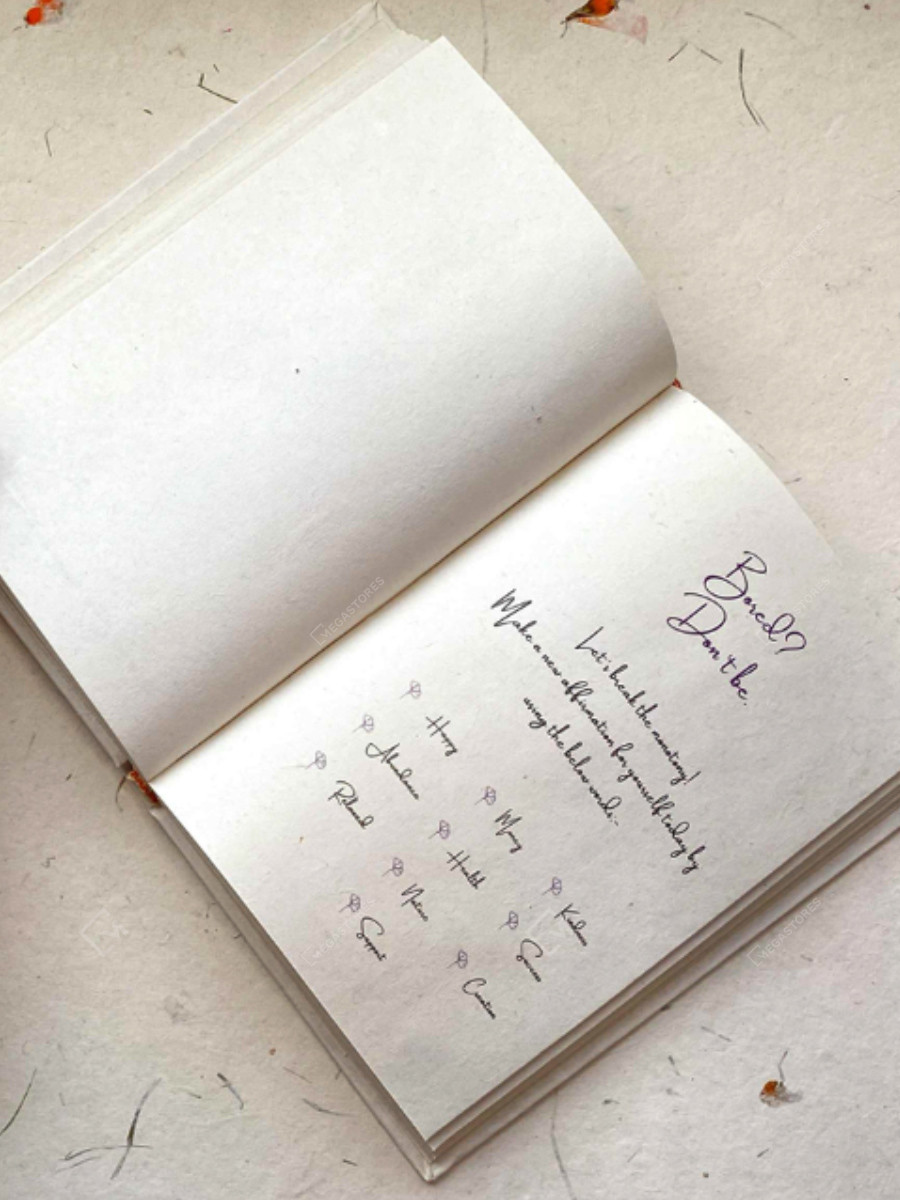 Bored?
Don't be.
Let's break the monotony!
Make a new affirmation for yourself today by
using the below words:-
Happy
Abundance
Relaxed
Money
Health
Nature
Support
Kindness
Success
Creation
MEGASTORES
MEGASTORES